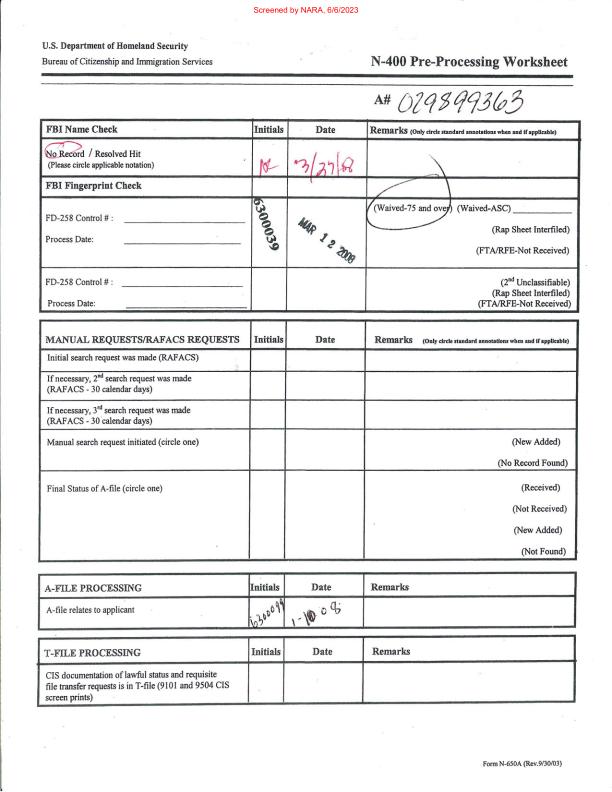 Screened by NARA, 6/6/2023
U.S. Department of Homeland Security
Bureau of Citizenship and Immigration Services
N-400 Pre-Processing Worksheet
A# 029899363
FBI Name Check Initials Date Remarks (Only circle standard annotations when and if applicable)
No Record / Resolved Hit
(Please circle applicable notation)
3/27/8
FBI Fingerprint Check
6300039
MAR 12 2008
(Waived-75 and over) (Waived-ASC)
FD-258 Control # :
(Rap Sheet Interfiled)
Process Date:
(FTA/RFE-Not Received)
FD-258 Control # :
(2nd Unclassifiable)
(Rap Sheet Interfiled)
Process Date:
(FTA/RFE-Not Received)
MANUAL REQUESTS/RAFACS REQUESTS Initials Date Remarks (Only circle standard annotations when and if applicable)
Initial search request was made (RAFACS)
If necessary, 2nd search request was made
(RAFACS - 30 calendar days)
If necessary, 3rd search request was made
(RAFACS - 30 calendar days)
Manual search request initiated (circle one)
(New Added)
(No Record Found)
Final Status of A-file (circle one)
(Received)
(Not Received)
(New Added)
(Not Found)
A-FILE PROCESSING Initials Date Remarks
A-file relates to applicant
T-FILE PROCESSING Initials Date Remarks
CIS documentation of lawful status and requisite
file transfer requests is in T-file (9101 and 9504 CIS
screen prints)
Form N-650A (Rev.9/30/03)